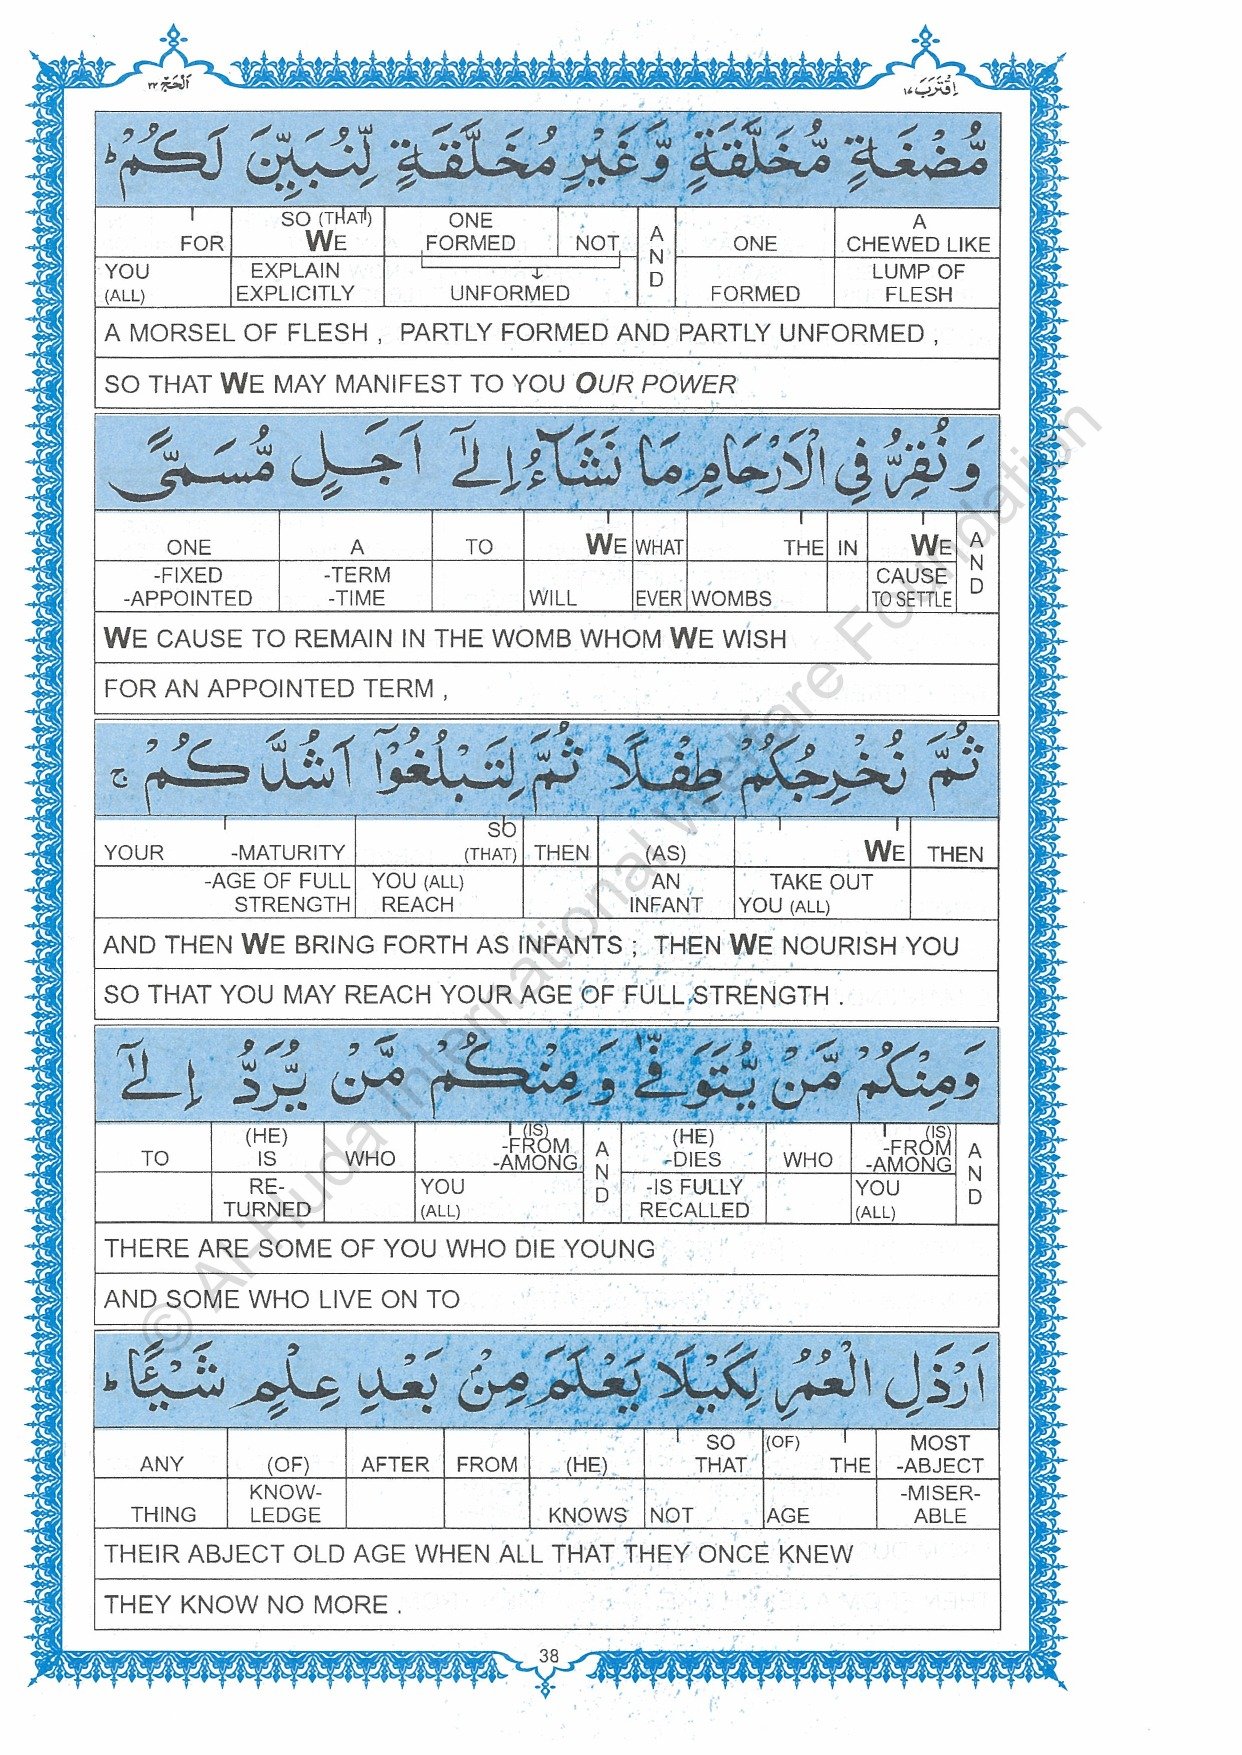 اَلْحَجّ ٢٢
اِقْتَرَبَ ١٧
مُّضْغَةٍ مُّخَلَّقَةٍ وَّغَيْرِ مُخَلَّقَةٍ لِّنُبَيِّنَ لَكُمْ ؕ
FOR SO (THAT) WE ONE FORMED NOT AND ONE A CHEWED LIKE
YOU (ALL) EXPLAIN EXPLICITLY UNFORMED FORMED LUMP OF FLESH
A MORSEL OF FLESH , PARTLY FORMED AND PARTLY UNFORMED ,
SO THAT WE MAY MANIFEST TO YOU OUR POWER
وَ نُقِرُّ فِي الْاَرْحَامِ مَا نَشَآءُ اِلٰٓى اَجَلٍ مُّسَمًّى
ONE A TO WE WHAT THE IN WE AND
-FIXED -APPOINTED -TERM -TIME WILL EVER WOMBS CAUSE TO SETTLE
WE CAUSE TO REMAIN IN THE WOMB WHOM WE WISH
FOR AN APPOINTED TERM ,
ثُمَّ نُخْرِجُكُمْ طِفْلًا ثُمَّ لِتَبْلُغُوْٓا اَشُدَّكُمْ ج
YOUR -MATURITY SO (THAT) THEN (AS) WE THEN
-AGE OF FULL STRENGTH YOU (ALL) REACH AN INFANT TAKE OUT YOU (ALL)
AND THEN WE BRING FORTH AS INFANTS ; THEN WE NOURISH YOU
SO THAT YOU MAY REACH YOUR AGE OF FULL STRENGTH .
وَمِنْكُمْ مَّنْ يُّتَوَفّٰى وَمِنْكُمْ مَّنْ يُّرَدُّ اِلٰٓى
TO (HE) IS WHO (IS) -FROM -AMONG AND (HE) -DIES WHO (IS) -FROM -AMONG AND
RE- TURNED YOU (ALL) -IS FULLY RECALLED YOU (ALL)
THERE ARE SOME OF YOU WHO DIE YOUNG
AND SOME WHO LIVE ON TO
اَرْذَلِ الْعُمُرِ لِكَيْلَا يَعْلَمَ مِنْۢ بَعْدِ عِلْمٍ شَيْـًٔا ؕ
ANY (OF) AFTER FROM (HE) SO THAT (OF) THE MOST -ABJECT
THING KNOW- LEDGE KNOWS NOT AGE -MISER- ABLE
THEIR ABJECT OLD AGE WHEN ALL THAT THEY ONCE KNEW
THEY KNOW NO MORE .
38
© Al-Huda International Welfare Foundation